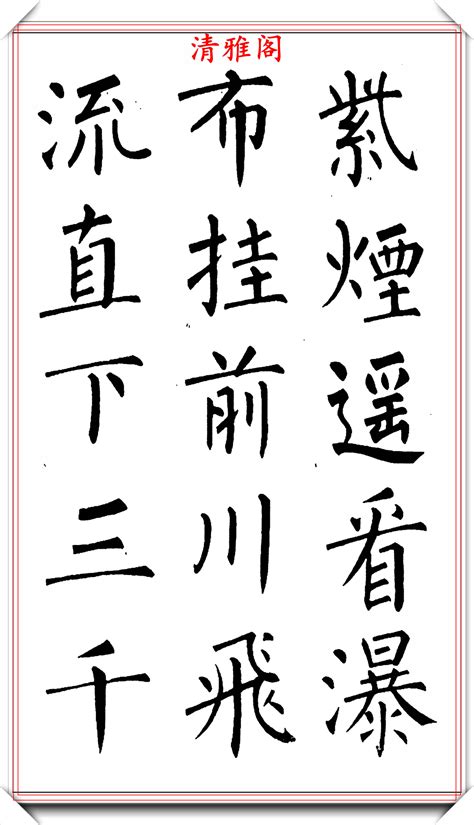 清雅阁
紫煙遥看瀑
布挂前川飛
流直下三千